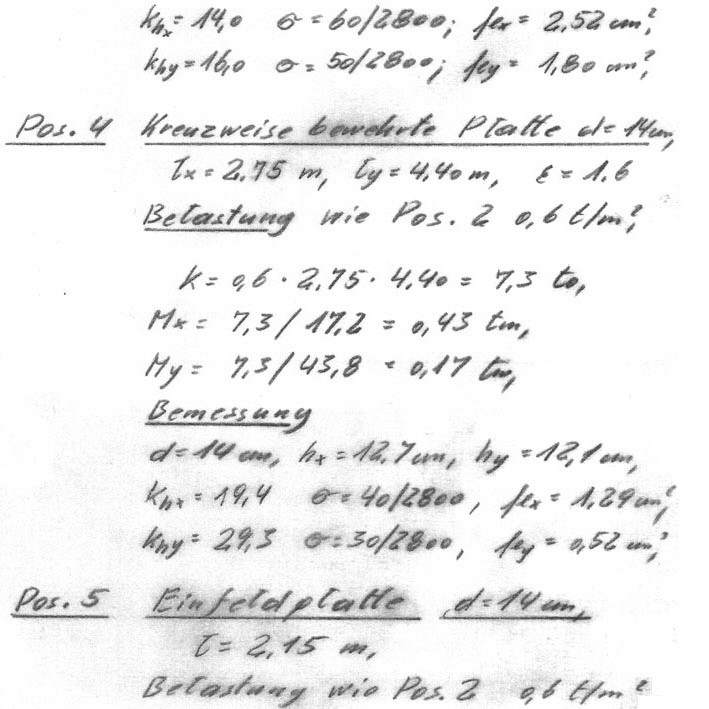 khx = 14,0 σ = 60/2800; fex = 2,52 cm²,
khy = 16,0 σ = 50/2800; fey = 1,80 cm²,
Pos. 4 Kreuzweise bewehrte Platte d = 14 cm,
lx = 2,75 m, ly = 4,40 m, ε = 1,6
Belastung wie Pos. 2 0,6 t/m²,
K = 0,6 · 2,75 · 4,40 = 7,3 to,
Mx = 7,3 / 17,2 = 0,43 tm,
My = 7,3 / 43,8 = 0,17 tm,
Bemessung
d = 14 cm, hx = 12,7 cm, hy = 12,1 cm,
khx = 19,4 σ = 40/2800, fex = 1,29 cm²,
khy = 29,3 σ = 30/2800, fey = 0,52 cm²,
Pos. 5 Einfeldplatte d = 14 cm,
l = 2,15 m,
Belastung wie Pos. 2 0,6 t/m²